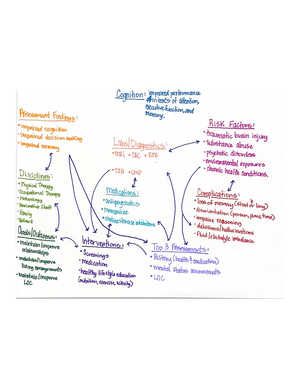 Cognition: impaired performance
of intests of attention,
executive function, and
memory.
Assessment Findings:
• impaired cognition
• impaired decision making
• impaired memory
Labs/Diagnostics:
• MRI • CBC • RPR
• TSH • CMP
Risk Factors:
• traumatic brain injury
• substance abuse
• psychotic disorders
• environmental exposures
• chronic health conditions
Disciplines:
• Physical Therapy
• Occupational Therapy
• Neurology
• Family
• Patient
Medications:
• Antipsychotics
• Memantine
• Cholinesterase inhibitors
Complications:
• loss of memory (short or long)
• disorientation (person, place, time)
• impaired reasoning
• delusions/hallucinations
• Fluid/electrolyte imbalance
Goals/Outcomes:
• Maintain/improve
relationships
• Maintain/improve
living arrangements
• Maintain/improve
LOC
Interventions:
• Screenings
• Medication
• healthy lifestyle education
(nutrition, exercise, activity)
Top 3 Assessments:
• History (health & medication)
• Mental status assessments
• LOC